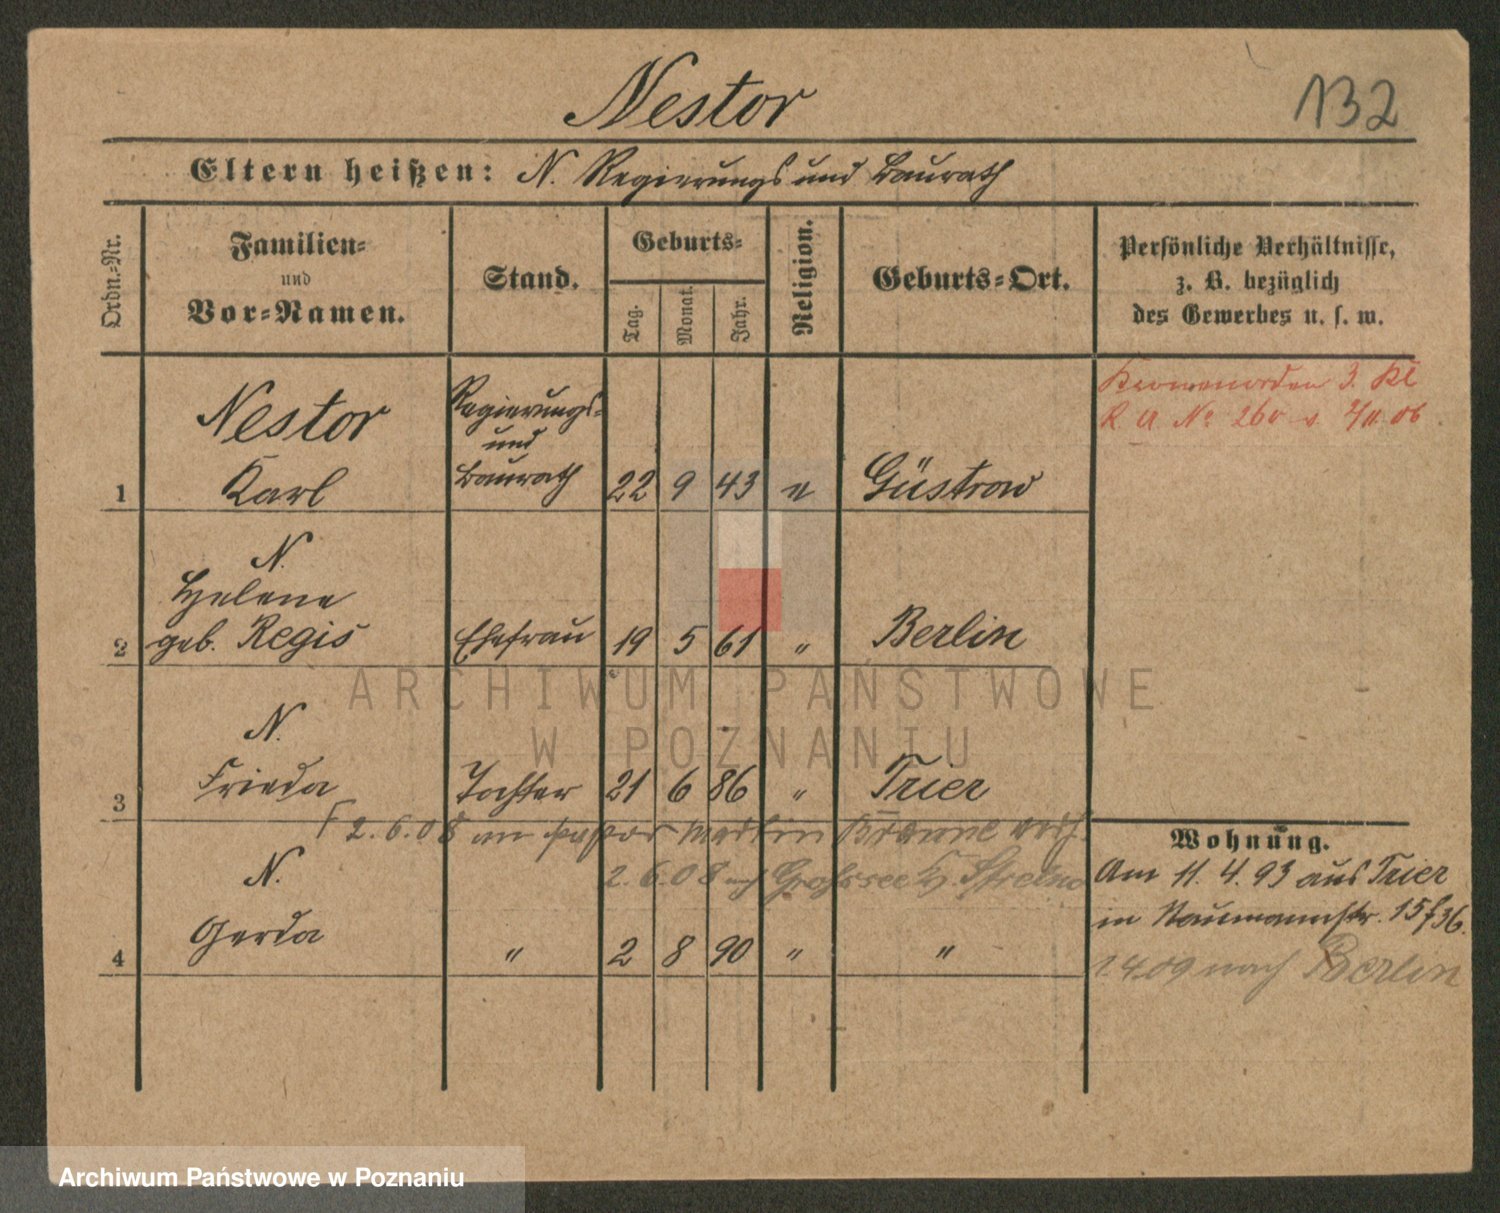 Nestor
132
Eltern heißen: N. Regierungs und Baurath
Ordn.=Nr.
Familien=
und
Vor=Namen.
Stand.
Geburts=
Tag.
Monat.
Jahr.
Religion.
Geburts=Ort.
Persönliche Verhältnisse,
z. B. bezüglich
des Gewerbes u. s. w.
Kronenorden 3. Kl
R A No 260 v.
Nestor
Karl
Regierungs-
und
Baurath
1 22 9 43 Güstrow
N.
Helene
2 geb. Regis Ehefrau 19 5 61 " Berlin
N.
3 Frieda Tochter 21 6 86 " Trier
2.6.08 an Martin
2.6.08
N.
4 Gerda " 2 8 90 " "
Wohnung.
Am 11.4.93 aus Trier
in Naumannstr. 15
1.4.09 nach Berlin
ARCHIWUM PAŃSTWOWE
W POZNANIU
Archiwum Państwowe w Poznaniu